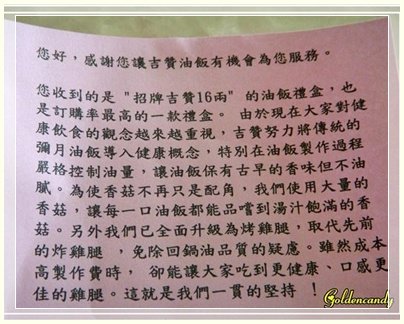 您好，感謝您讓吉贊油飯有機會為您服務。
您收到的是 "招牌吉贊16兩" 的油飯禮盒，也
是訂購率最高的一款禮盒。 由於現在大家對健
康飲食的觀念越來越重視，吉贊努力將傳統的
彌月油飯導入健康概念，特別在油飯製作過程
嚴格控制油量，讓油飯保有古早的香味但不油
膩。為使香菇不再只是配角，我們使用大量的
香菇，讓每一口油飯都能品嚐到湯汁飽滿的香
菇。另外我們已全面升級為烤雞腿，取代先前
的炸雞腿 ，免除回鍋油品質的疑慮。雖然成本
高製作費時， 卻能讓大家吃到更健康、口感更
佳的雞腿。這就是我們一貫的堅持 ！
Goldencandy